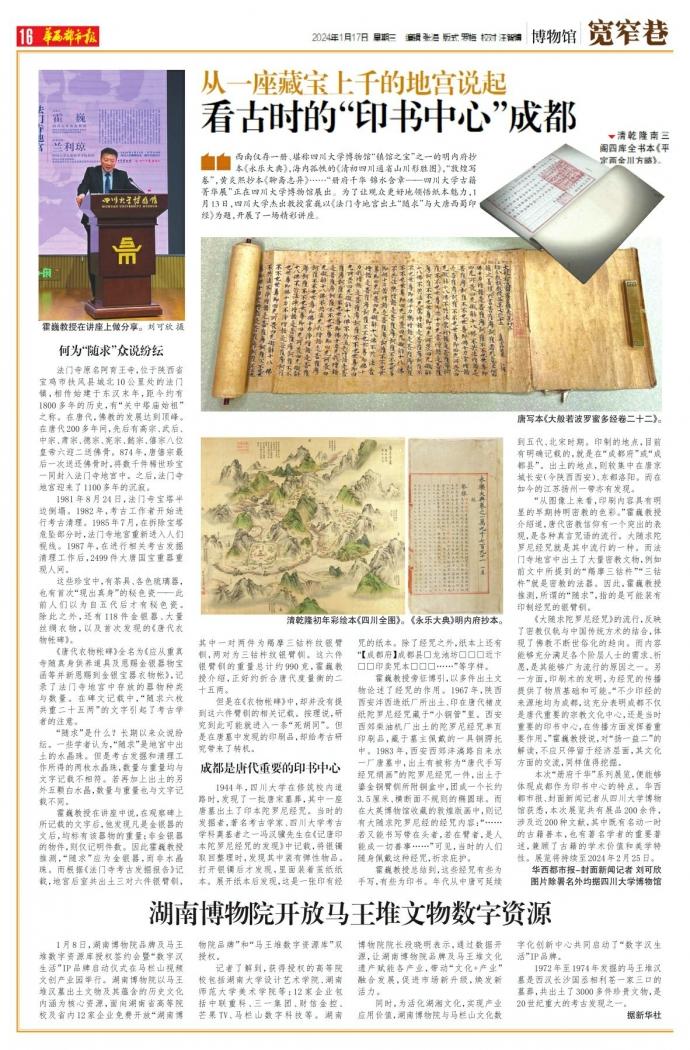 16 华西都市报
2024年1月17日 星期三
博物馆
宽窄巷
从一座藏宝上千的地宫说起
看古时的“印书中心”成都
▼清乾隆南三
阁四库全书本《平
定两金川方略》。
西南仅存一册、堪称四川大学博物馆“镇馆之宝”之一的明内府抄
本《永乐大典》,海内孤帙的《清初四川通省山川形胜图》,“敦煌写
卷”,黄炎熙抄本《聊斋志异》……“册府千华 锦水含章——四川大学古籍
菁华展”正在四川大学博物馆展出。为了让观众更好地领悟纸本魅力,1
月13日,四川大学杰出教授霍巍以《法门寺地宫出土“随求”与大唐西蜀印
经》为题,开展了一场精彩讲座。
霍巍
兰利琼
四川大学博物馆
霍巍教授在讲座上做分享。刘可欣 摄
唐写本《大般若波罗蜜多经卷二十二》。
清乾隆初年彩绘本《四川全图》。
《永乐大典》明内府抄本。
何为“随求”众说纷纭
法门寺原名阿育王寺,位于陕西省
宝鸡市扶风县城北10公里处的法门
镇,相传始建于东汉末年,距今约有
1800多年的历史,有“关中塔庙始祖”
之称。在唐代,佛教的发展达到顶峰。
在唐代200多年间,先后有高宗、武后、
中宗、肃宗、德宗、宪宗、懿宗、僖宗八位
皇帝六迎二送佛骨。874年,唐僖宗最
后一次送还佛骨时,将数千件稀世珍宝
一同封入法门寺地宫中。之后,法门寺
地宫迎来了1100多年的沉寂。
1981年8月24日,法门寺宝塔半
边倒塌。1982年,考古工作者开始进
行考古清理。1985年7月,在拆除宝塔
危坠部分时,法门寺地宫重新进入人们
视线。1987年,在进行相关考古发掘
清理工作后,2499件大唐国宝重器重
现人间。
这些珍宝中,有茶具、各色琉璃器,
也有首次“现出真身”的秘色瓷——此
前人们以为自五代后才有秘色瓷。
除此之外,还有118件金银器、大量
丝绸衣物,以及首次发现的《唐代衣
物帐碑》。
《唐代衣物帐碑》全名为《应从重真
寺随真身供养道具及恩赐金银器物宝
函等并新恩赐到金银宝器衣物帐》,记
录了法门寺地宫中存放的器物种类
与数量。在碑文记载中,“随求六枚
共重二十五两”的文字引起了考古学
者的注意。
“随求”是什么?长期以来众说纷
纭。一些学者认为,“随求”是地宫中出
土的水晶珠。但是考古发掘和清理工
作所得的两枚水晶珠,数量与重量均与
文字记载不相符。若再加上出土的另
外五颗白水晶,数量与重量也与文字记
载不同。
霍巍教授在讲座中说,在观察碑上
所记载的文字后,他发现凡是金银器的
文后,均标有该器物的重量;非金银器
的物件,则仅记明件数。因此霍巍教授
推测,“随求”应为金银器,而非水晶
珠。而根据《法门寺考古发掘报告》记
载,地宫后室共出土三对六件银臂钏,
其中一对两件为羯摩三钴杵纹银臂
钏,两对为三钴杵纹银臂钏。这六件
银臂钏的重量总计约990克,霍巍教
授介绍,正好约折合唐代度量衡的二
十五两。
但是在《衣物帐碑》中,却并没有提
到这六件臂钏的相关记载。按理说,研
究到此可能就进入一条“死胡同”。但
是在唐墓中发现的印刷品,却给考古研
究带来了转机。
成都是唐代重要的印书中心
1944年,四川大学在修筑校内道
路时,发现了一批唐宋墓葬,其中一座
唐墓出土了印本陀罗尼经咒。当时的
发掘者,著名考古学家、四川大学考古
学科奠基者之一冯汉骥先生在《记唐印
本陀罗尼经咒的发现》中记载,将银镯
取回整理时,发现其中装有弹性物品。
打开银镯后才发现,里面装着茧纸纸
本。展开纸本后发现,这是一张印有经
咒的纸本。除了经咒之外,纸本上还有
“【成都府】成都县□龙池坊□□□近卞
□□□印卖咒本□□□……”等字样。
霍巍教授旁征博引,以多件出土文
物论述了经咒的作用。1967年,陕西
西安沣西造纸厂所出土、印在唐代楮皮
纸陀罗尼经咒藏于“小铜管”里。西安
西郊柴油机厂出土的陀罗尼经咒单页
印刷品,藏于墓主佩戴的一具铜腭托
中。1983年,西安西郊沣滈路自来水
一厂唐墓中,出土有被称为“唐代手写
经咒绢画”的陀罗尼经咒一件,出土于
鎏金铜臂钏所附铜盒中,团成一个长约
3.5厘米、横断面不规则的椭圆球。而
在大英博物馆收藏的敦煌版画中,则记
有大随求陀罗尼经的经咒内容:“……
若又能书写带在头者,若在臂者,是人
能成一切善事……”可见,当时的人们
随身佩戴这种经咒,祈求庇护。
霍巍教授总结到,这些经咒有些为
手写,有些为印书。年代从中唐可延续
到五代、北宋时期。印制的地点,目前
有明确记载的,就是在“成都府”或“成
都县”。出土的地点,则较集中在唐京
城长安(今陕西西安)、东都洛阳。而在
如今的江苏扬州一带亦有发现。
“从图像上来看,印刷内容具有明
显的早期持明密教的色彩。”霍巍教授
介绍道,唐代密教信仰有一个突出的表
现,是各种真言咒语的流行。大随求陀
罗尼经咒就是其中流行的一种。而法
门寺地宫中出土了大量密教文物,例如
前文中所提到的“羯摩三钴杵”“三钴
杵”就是密教的法器。因此,霍巍教授
推测,所谓的“随求”,指的是可能装有
印制经咒的银臂钏。
《大随求陀罗尼经咒》的流行,反映
了密教仪轨与中国传统方术的结合,体
现了佛教不断世俗化的趋向。而内容
能够充分满足各个阶层人士的需求、祈
愿,是其能够广为流行的原因之一。另
一方面,印刷术的发明,为经咒的传播
提供了物质基础和可能。“不少印经的
来源地均为成都,这充分表明成都不仅
是唐代重要的宗教文化中心,还是当时
重要的印书中心,在传播方面发挥着重
要作用。”霍巍教授说,对“扬一益二”的
解读,不应只停留于经济层面,其文化
方面的交流,同样值得挖掘。
本次“册府千华”系列展览,便能够
体现成都作为印书中心的特点。华西
都市报、封面新闻记者从四川大学博物
馆获悉,本次展览共有展品200余件,
涉及近200种文献,其中既有名动一时
的古籍善本,也有著名学者的重要著
述,兼顾了古籍的学术价值和美学特
性。展览将持续至2024年2月25日。
华西都市报-封面新闻记者 刘可欣
图片除署名外均据四川大学博物馆
湖南博物院开放马王堆文物数字资源
1月8日,湖南博物院品牌及马王
堆数字资源库授权签约会暨“数字汉
生活”IP品牌启动仪式在马栏山视频
文创产业园举行。湖南博物院以马王
堆汉墓出土文物及其蕴含的历史文化
内涵为核心资源,面向湖南省高等院
校及省内12家企业免费开放“湖南博
物院品牌”和“马王堆数字资源库”双
授权。
记者了解到,获得授权的高等院
校包括湖南大学设计艺术学院、湖南
师范大学美术学院等;12家企业包
括中联重科、三一集团、财信金控、
芒果TV、马栏山数字科技等。湖南
博物院院长段晓明表示,通过数据开
源,让湖南博物院品牌及马王堆文化
遗产赋能各产业,带动“文化+产业”
融合发展,促进市场新升级,焕发新
活力。
同时,为活化湖湘文化,实现产业
应用价值,湖南博物院与马栏山文化数
字化创新中心共同启动了“数字汉生
活”IP品牌。
1972年至1974年发掘的马王堆汉
墓是西汉长沙国丞相利苍一家三口的
墓葬,共出土了3000多件珍贵文物,是
20世纪重大的考古发现之一。
据新华社